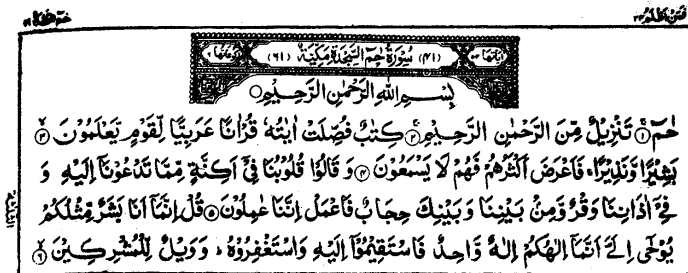 فمن اظلم ٢٤ حٰم السجدة ٤١
اٰیاتها ٥٤ (٤١) سُوْرَةُ حٰمٓ السَّجْدَةِ مَكِّيَّةٌ (٦١) رکوعاتها ٦
بِسْمِ اللّٰهِ الرَّحْمٰنِ الرَّحِيْمِ
حٰمٓ ۚ﴿١﴾ تَنْزِيْلٌ مِّنَ الرَّحْمٰنِ الرَّحِيْمِ ۚ﴿٢﴾ كِتٰبٌ فُصِّلَتْ اٰيٰتُهٗ قُرْاٰنًا عَرَبِيًّا لِّقَوْمٍ يَّعْلَمُوْنَ ۙ﴿٣﴾
بَشِيْرًا وَّنَذِيْرًا ۚ فَاَعْرَضَ اَكْثَرُهُمْ فَهُمْ لَا يَسْمَعُوْنَ ﴿٤﴾ وَ قَالُوْا قُلُوْبُنَا فِيْۤ اَكِنَّةٍ مِّمَّا تَدْعُوْنَاۤ اِلَيْهِ وَ
فِيْۤ اٰذَانِنَا وَقْرٌ وَّمِنْۢ بَيْنِنَا وَبَيْنِكَ حِجَابٌ فَاعْمَلْ اِنَّنَا عٰمِلُوْنَ ﴿٥﴾ قُلْ اِنَّمَاۤ اَنَا بَشَرٌ مِّثْلُكُمْ
يُوْحٰۤى اِلَيَّ اَنَّمَاۤ اِلٰهُكُمْ اِلٰهٌ وَّاحِدٌ فَاسْتَقِيْمُوْۤا اِلَيْهِ وَاسْتَغْفِرُوْهُ ؕ وَوَيْلٌ لِّلْمُشْرِكِيْنَ ۙ﴿٦﴾